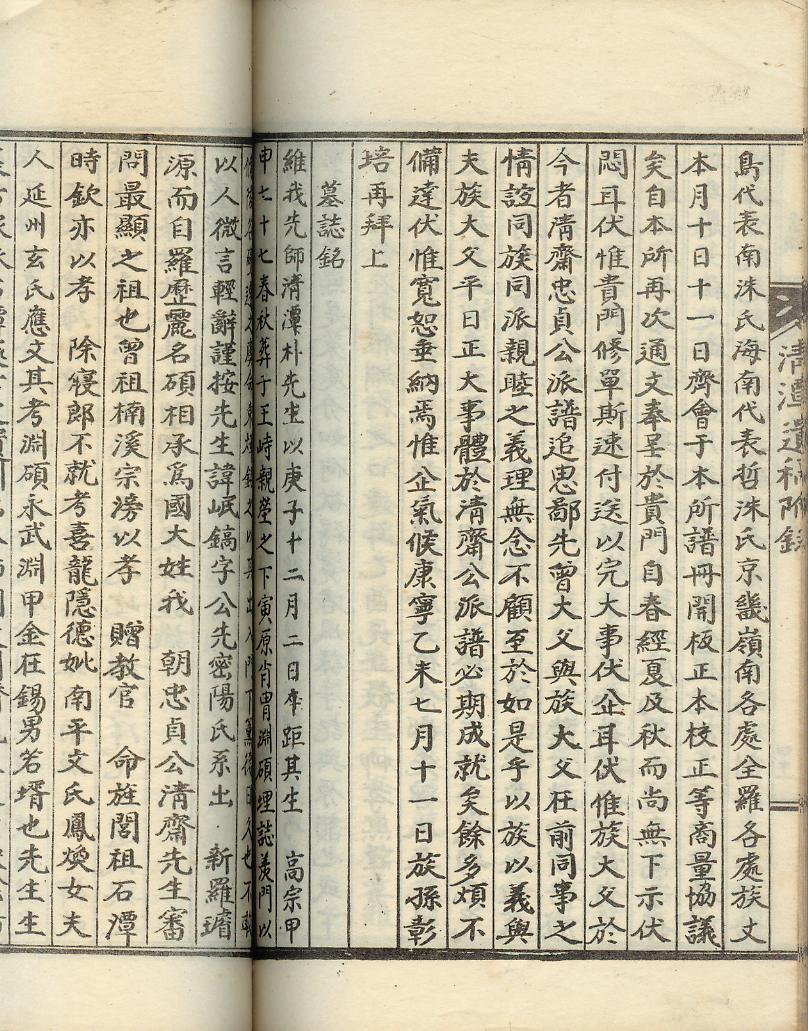 清潭遺稿附錄
島代表南洙氏海南代表哲洙氏京畿嶺南各處全羅各處族丈
本月十日十一日齊會于本所譜冊開板正本校正等商量協議
矣自本所再次通文奉呈於貴門自春經夏及秋而尚無下示伏
悶耳伏惟貴門修單斯速付送以完大事伏企耳伏惟族大父於
今者清齋忠貞公派譜追思鄙先曾大父與族大父在前同事之
情誼同族同派親睦之義理無念不顧至於如是乎以族以義與
夫族大父平日正大事體於清齋公派譜必期成就矣餘多煩不
備達伏惟寬恕垂納焉惟企氣候康寧乙未七月十一日族孫彰
培再拜上
墓誌銘
維我先師清潭朴先生以庚子十二月二日卒距其生 高宗甲
申七十七春秋葬于王峙親塋之下寅原肖胄淵碩埋誌羨門以
以人微言輕辭謹按先生諱岷鎬字公先密陽氏系出 新羅璿
源而自羅歷麗名碩相承爲國大姓我 朝忠貞公清齋先生審
問最顯之祖也曾祖楠溪宗滂以孝 贈教官 命旌閭祖石潭
時欽亦以孝 除寢郎不就考喜龍隱德妣南平文氏鳳煥女夫
人延州玄氏應文其考淵碩永武淵甲金在錫男若壻也先生生